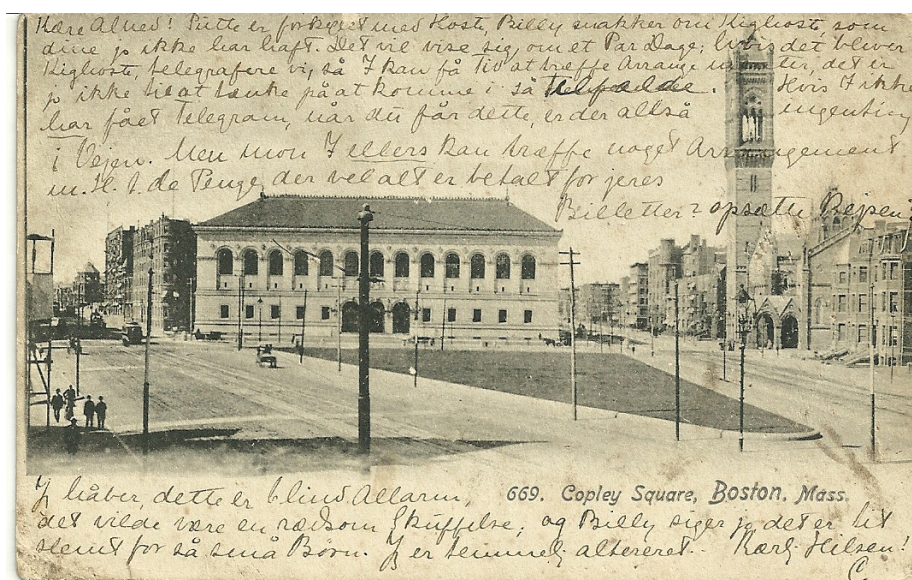 Kære Alfred! Putte er forkjølet med Hoste, Billy snakker om Kighoste, som
dine jo ikke har haft. Det vil vise sig, om et Par Dage; hvis det bliver
Kighoste, telegrafere vi, så I kan få Tid at træffe Arrange ter, det er
jo ikke at tænke på at komme i så . Hvis I ikke
har fået Telegram, når du får dette, er der altså ingenting
i Vejen. Men mon I ellers kan træffe noget Arrangement
m. H. t. de Penge, der vel alt er betalt for jeres
Billetter? opsætte Rejsen?
669. Copley Square, Boston, Mass.
J håber, dette er blind Allarm,
det vilde være en rædsom Skuffelse; og Billy siger jo, det er lit
slemt for så små Børn. J er temmeli altereret. Kærli Hilsen!
C